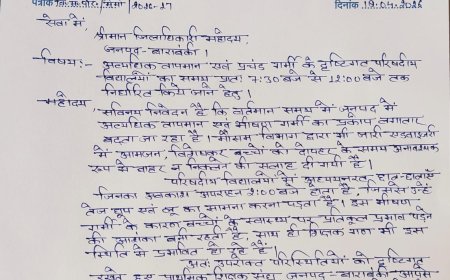 पत्रांक वि.स.पो./ /2026-27 दिनांक 19.04.2026
सेवा में
श्रीमान जिलाधिकारी महोदय,
जनपद-बाराबंकी।
विषय:- अत्यधिक तापमान एवं प्रचंड गर्मी के दृष्टिगत परिषदीय
विद्यालयों का समय प्रातः 7:30 बजे से 12:00 बजे तक
निर्धारित किये जाने हेतु।
महोदय
सविनय निवेदन है कि वर्तमान समय में जनपद में
अत्यधिक तापमान एवं भीषण गर्मी का प्रकोप लगातार
बढ़ता जा रहा है। मौसम विभाग द्वारा भी जारी एडवाइजरी
में आमजन, विशेषकर बच्चों को दोपहर के समय अनावश्यक
रूप से बाहर न निकलने की सलाह दी गयी है।
परिषदीय विद्यालयों में अध्ययनरत छात्र-छात्राएँ
जिनका अवकाश अपराह्न 2:00 बजे होता है, जिससे उन्हें
तेज धूप एवं लू का सामना करना पड़ता है। इस भीषण
गर्मी के कारण बच्चों के स्वास्थ्य पर प्रतिकूल प्रभाव पड़ने
की आशंका बनी रहती है, साथ ही शिक्षक गण भी इस
स्थिति से प्रभावित हो रहे हैं।
अतः उपरोक्त परिस्थितियों को दृष्टिगत
रखते हुए प्राथमिक शिक्षक संघ जनपद-बाराबंकी आपसे